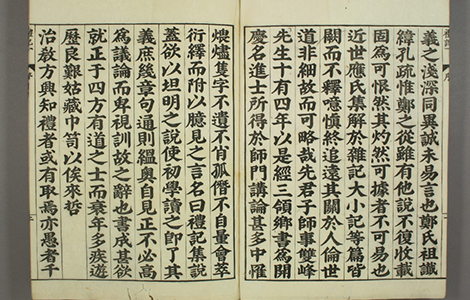 義之淺深同異誠未易言也鄭氏祖讖
緯孔疏惟鄭之從雖有他說不復收載
固爲可恨然其灼然可據者不可易也
近世應氏集解於雜記大小記等篇皆
闕而不釋噫愼終追遠其關於人倫世
道非細故而可略哉先君子師事雙峰
先生十有四年以是經三領鄕書爲開
慶名進士所得於師門講論甚多中罹
煨燼隻字不遺不肖孤僭不自量會萃
衍繹而附以臆見之言名曰禮記集說
蓋欲以坦明之說使初學讀之卽了其
義庶幾章句通則縕奧自見正不必高
爲議論而卑視訓故之辭也書成甚欲
就正于四方有道之士而衰年多疾遊
歷良艱姑藏巾笥以俟來哲
治敎方興知禮者或有取焉亦愚者千